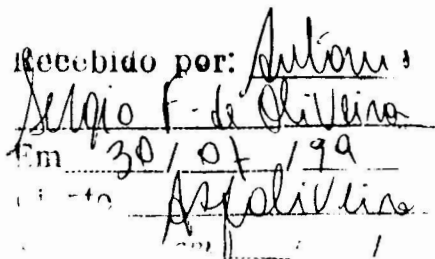 Recebido por: Antonio
Sérgio F. de Oliveira
Em 30 / 07 / 99
ASFoliveira